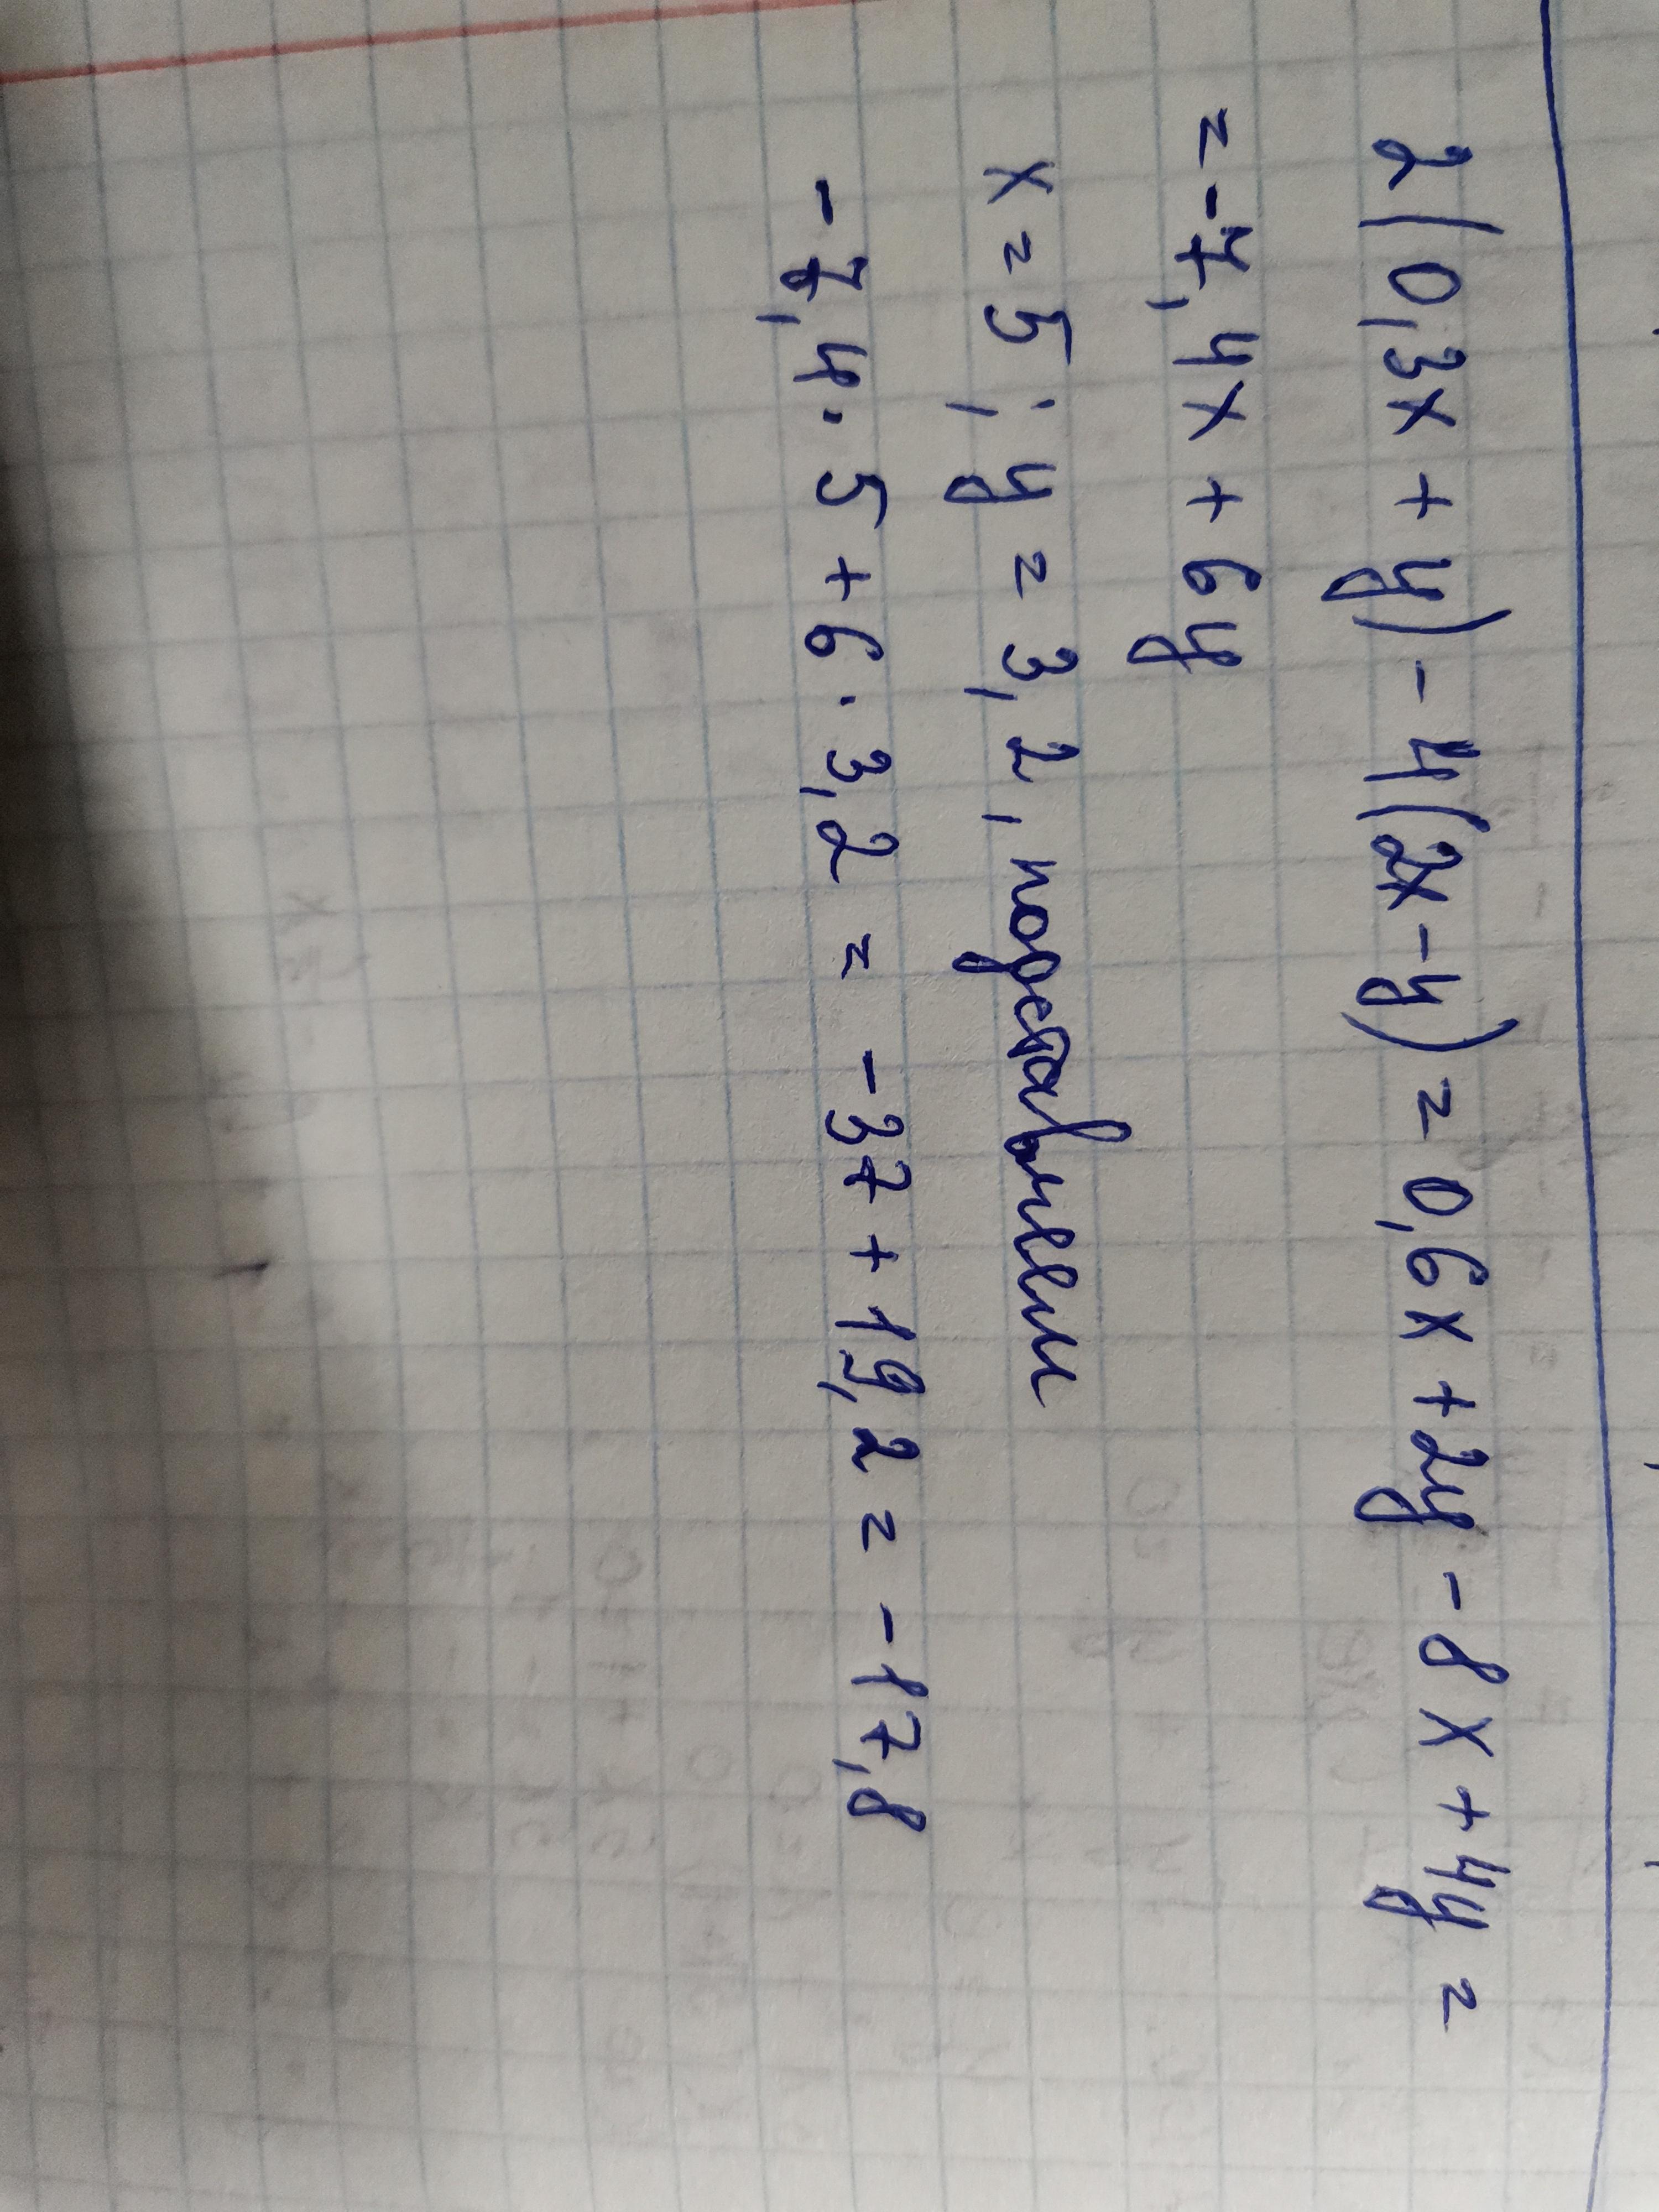 2(0,3x + y) - 4(2x - y) = 0,6x + 2y - 8x + 4y =
= -7,4x + 6y
x = 5 ; y = 3,2 , подставляем
-7,4 · 5 + 6 · 3,2 = -37 + 19,2 = -17,8